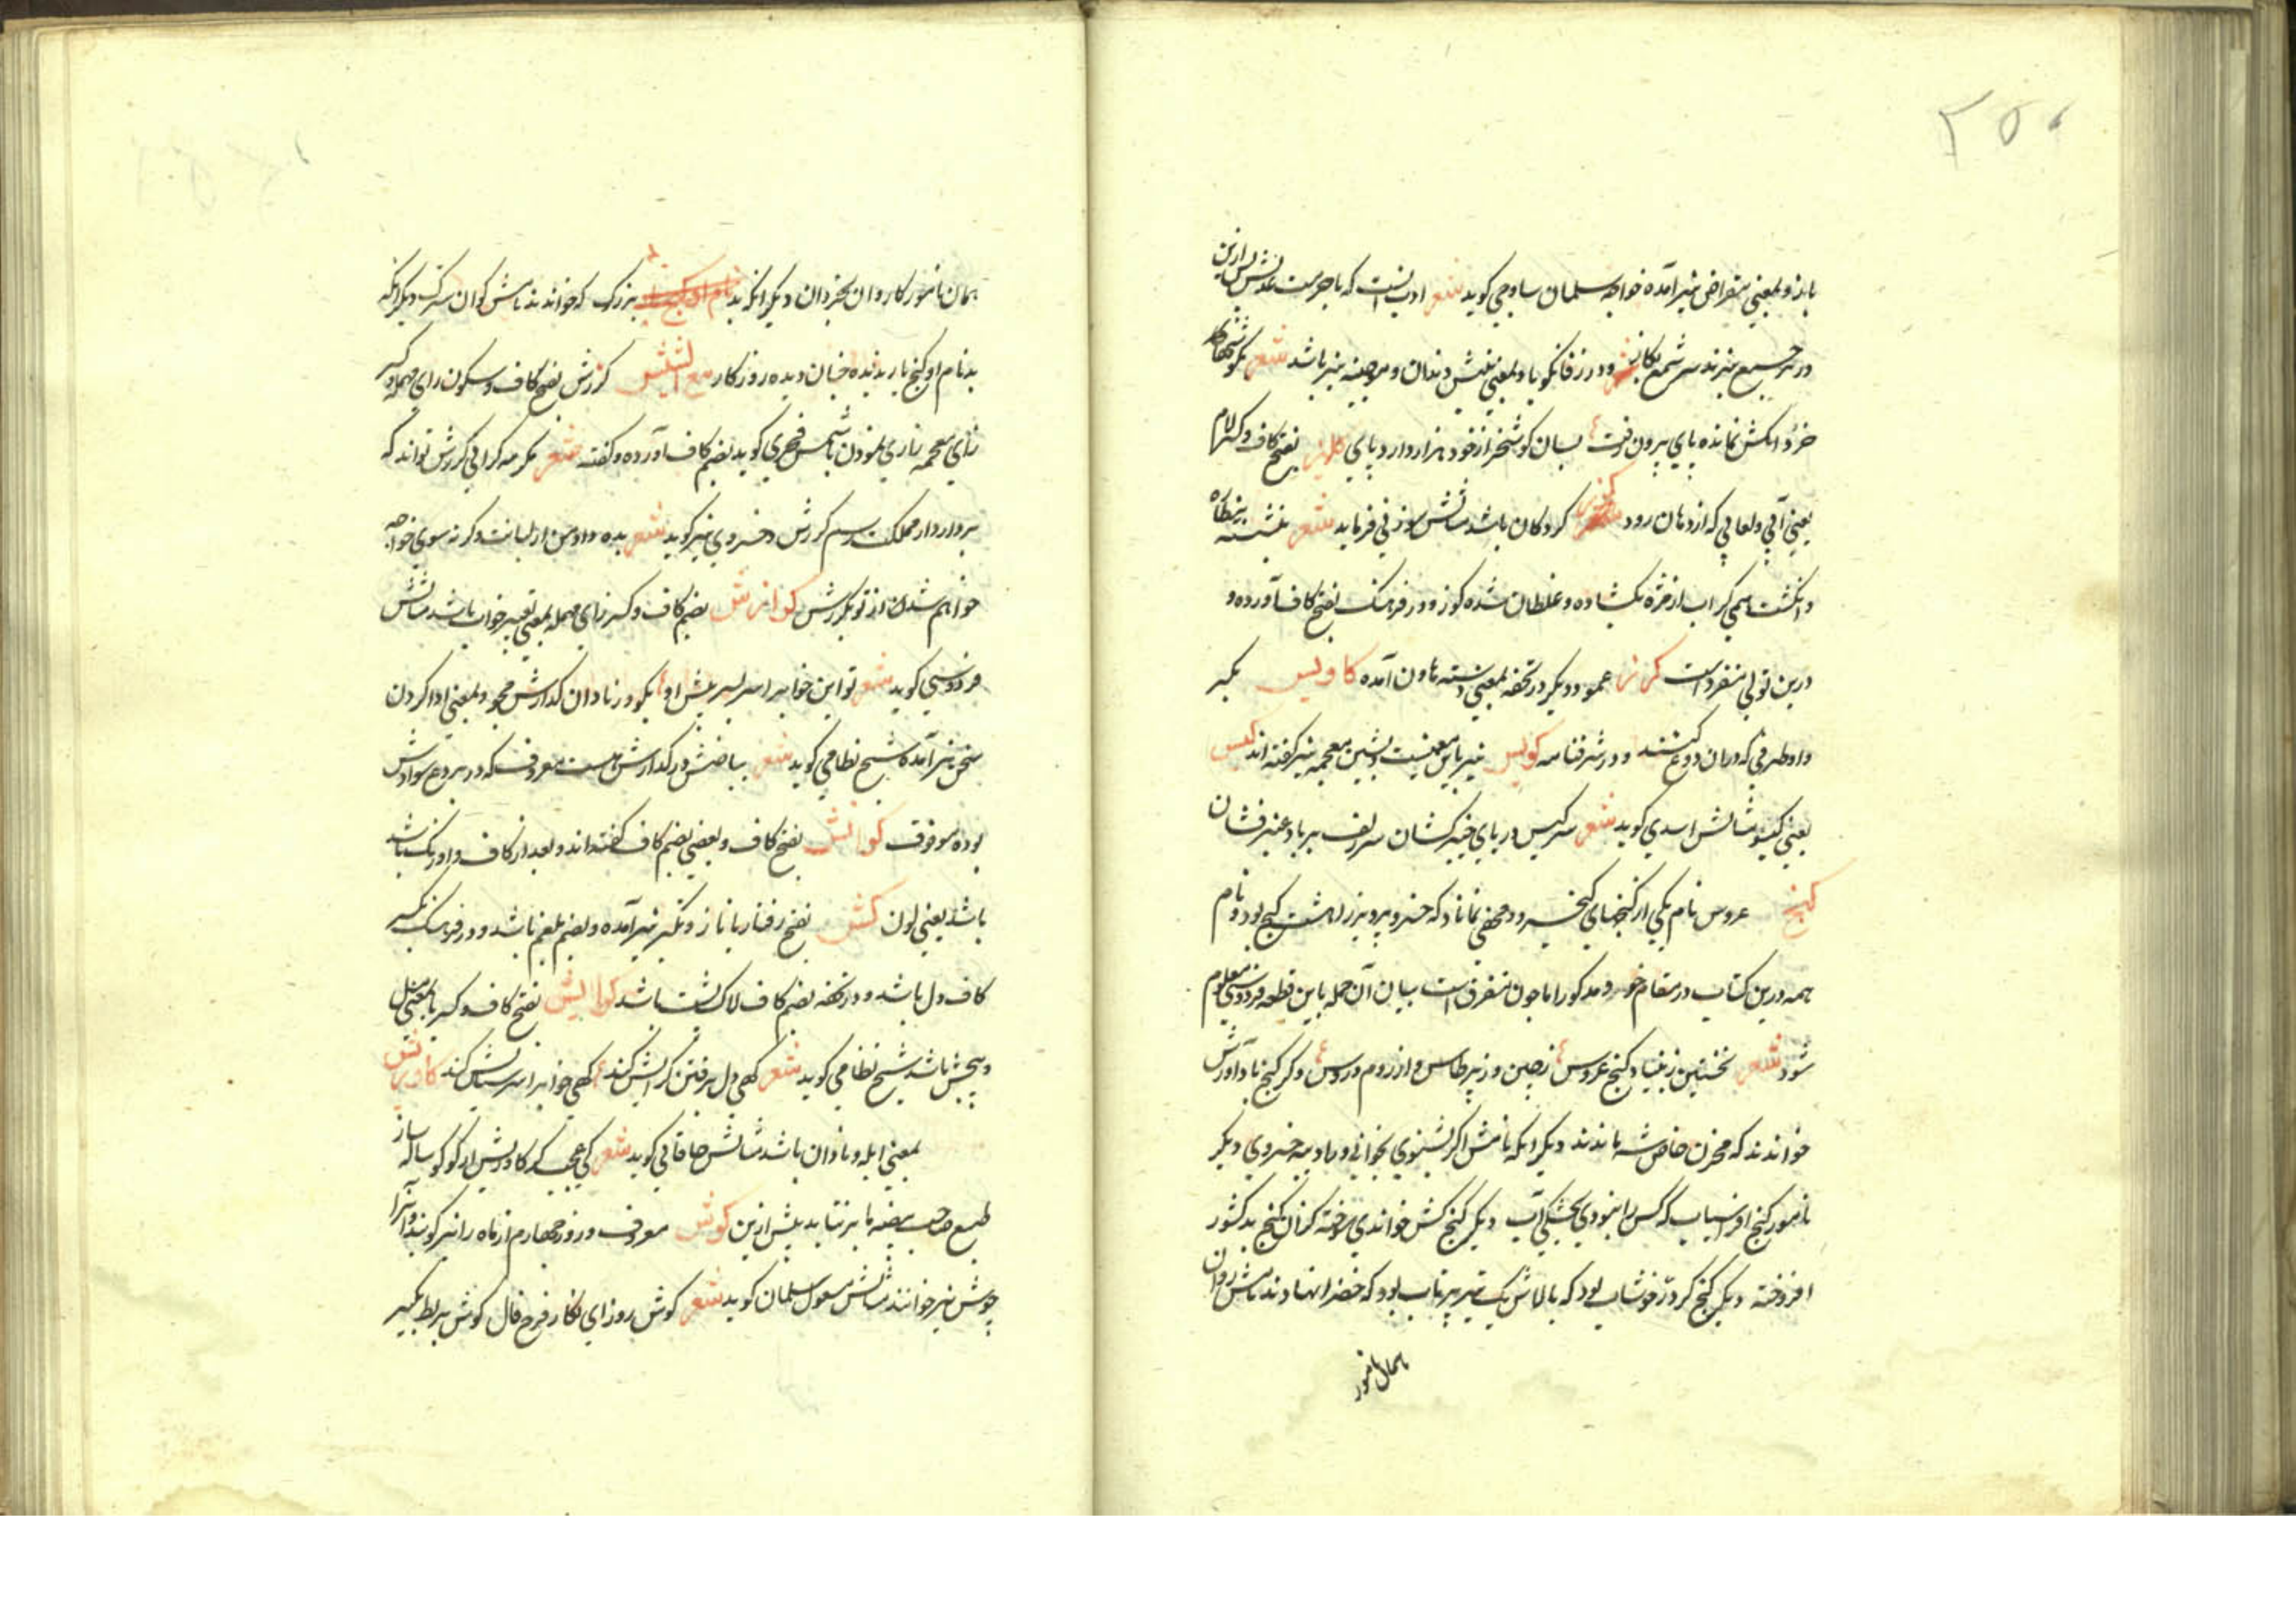 ۲۵۰
باز و بمعنی مقراض نیز آمده خواجه سلمان ساوجی کوید شعر ادب انست که با حرمت عدلش پس ازین
در مجمع نبرند سر شمع بکاز و در زفانکویا و بمعنی نیش دندان و موچینه نیز باشد شعر
خرد لنکش نمانده پای برون رفت بسان کوشخر از خود هزار دارد پای بفتح کاف و کسر لام
یعنی آبی و لعابی که از دهان رود کردکان باشد مثالش سوزنی فرماید شعر نشسته بنظاره
و انکشت همی کز اب از غژه بکشاده و غلطان شده کوز و در فرهنک بفتح کاف آورده و
درین قول منفرد است کرز عمود و دیکر در تحفه بمعنی دسته هاون آمده کاویس بکسر
واو ظرفی که در ان دوغ کنند و در شرفنامه کویس نیز باین معنیست و بشین معجمه نیز کفته اند کیس
یعنی کیسو مثالش اسدی کوید شعر سر کیس در پای خیبر کشان سر زلف بر باد عنبر فشان
کنج عروس نام یکی از کنجهای کیخسرو و مخفی نماناد که خسرو پرویز را هشت کنج بود و نام
همه درین کتاب در مقام خود مذکور اما چون متفرق است بیان آن جمله باین قطعه فردوسی معلوم
شود شعر نخستین ز بنیاد کنج عروس ز چین و ز برطاس و از روم و روس دکر کنج باد آورش
خواندند که مخزن خاص شه ماندند دیکر انکه نامش اکر بشنوی بخوانی و را دیبه خسروی دیکر
نامور کنج افراسیاب که کس را نبودی بخشکی آب دیکر کنج کش خواندی سوخته کزان کنج بد کشور
افروخته دیکر کنج کز در خوشاب بود که بالاش یک تیر پرتاب بود که خضرا نهادند نامش ردان
همان نامور
همان نامور کاردان بخردان دیکر انکه بد بزرک که خواندند نامش کوان سترک دیکر انکه
بد نام او کنج بار ندیده چنان دیده روزکار مع الشین کرزش بفتح کاف و سکون رای مهمله و کسر
زای معجمه زاری نمودن باشد شمس فخری کوید بضم کاف آورده و کفته شعر مکرمه کرانی کرزش تواند که
بردار دار مملکت رسم کرزش و خسروی نیز کوید شعر بده داد من از لبانت وکر نه سوی خواجه
خواهم شدن از تو بکرزش کوازش بضم کاف و کسر زای مهمله بمعنی تعبیر خواب باشد مثالش
فردوسی کوید شعر تو این خواب را سر بسر پیش او بکو و ز نادان کذارش مجو و بمعنی ادا کردن
سخن نیز آمده شیخ نظامی کوید شعر بیاضش در کذارش هست معروف که در بردع سوادش
بوده موقوف بفتح کاف و بعضی بضم کاف کفته اند و بعد از کاف واو نیک باشد
باشد یعنی لون کش بفتح رفتار با ناز و تکبر نیز آمده و بضم بلغم باشد و در فرهنک بکسر
کاف دل باشد و در تحفه بضم کاف لاک پشت باشد بفتح کاف و کسر یا بمعنی میل
و پیچش باشد شیخ نظامی کوید شعر کهی دل برفتن کرایش کند کهی خواب را سر ستایش کند
بمعنی ابله و نادان باشد مثالش خاقانی کوید شعر کی عجب کر کاوریش زرکر کوساله ساز
طبع صاحب بیضه ما بر نتابد بیش ازین کوش معروف و روز چهاردهم از ماه را نیز کویند و آنرا
جوش نیز خوانند مثالش مسعود سلمان کوید شعر کوش روز ای نکار فرخ فال کوش بربط بکیر